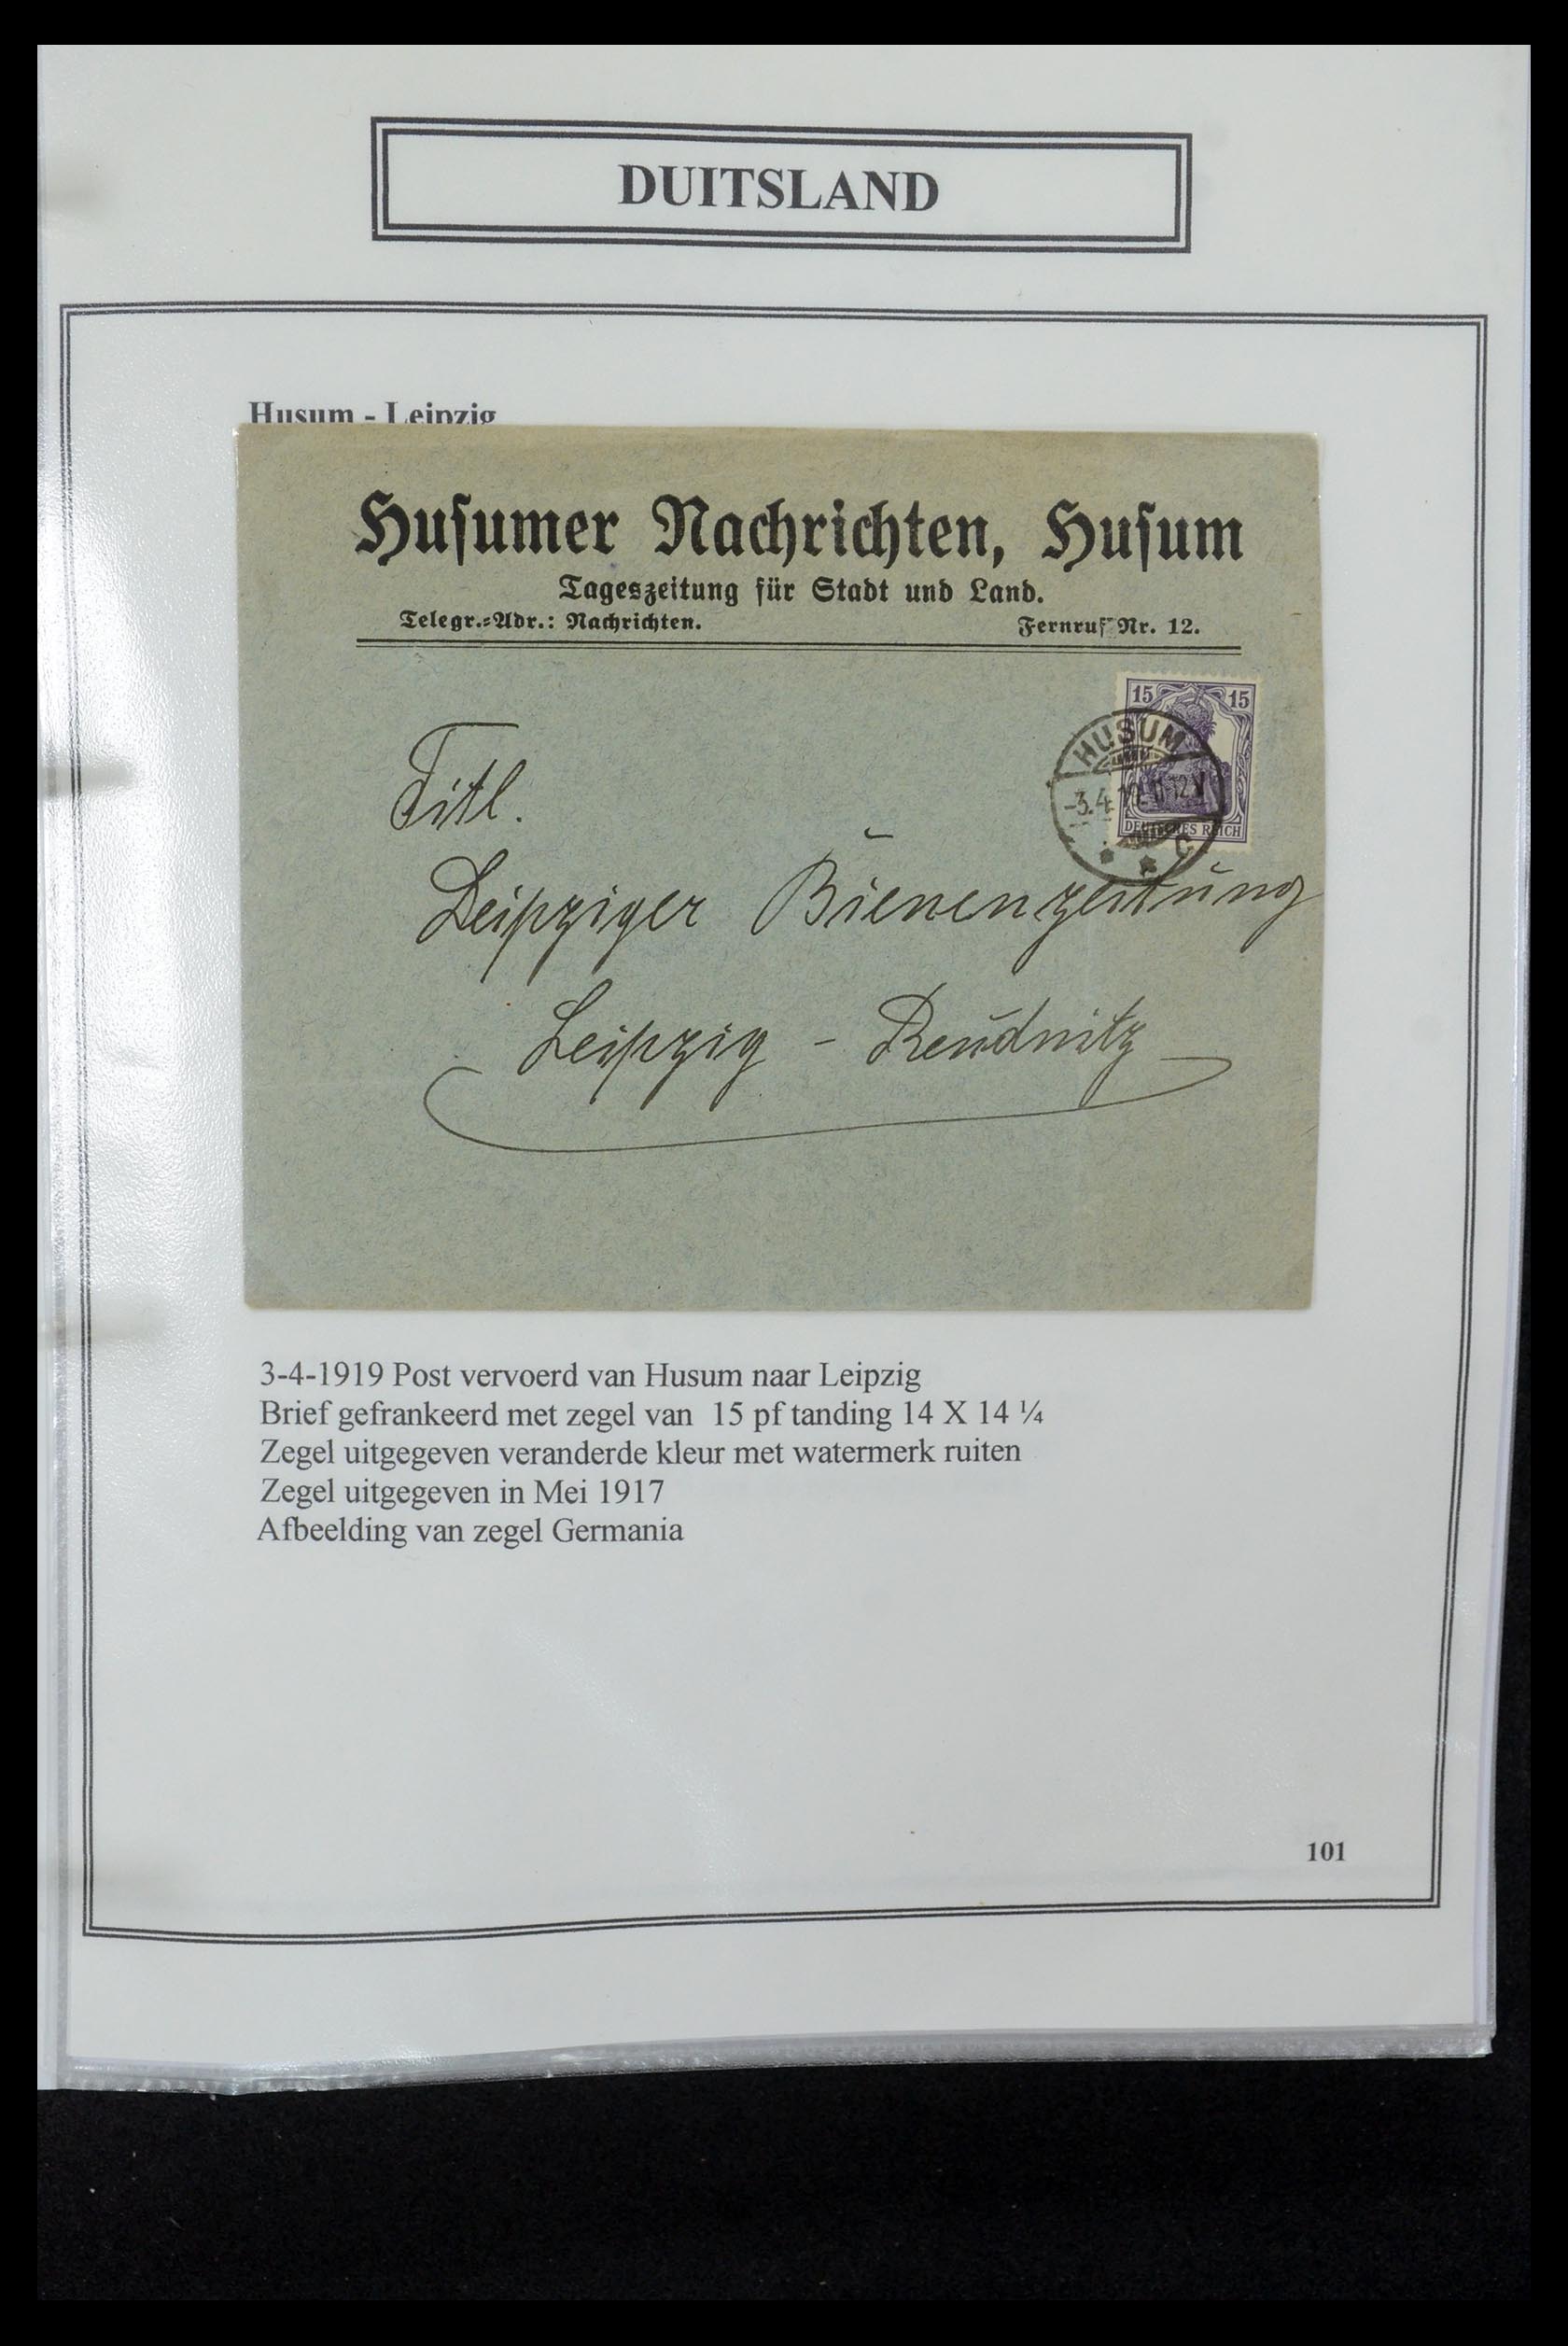 DUITSLAND
Husum - Leipzig
Husumer Nachrichten, Husum
Tageszeitung für Stadt und Land.
Telegr.=Adr.: Nachrichten.
Fernruf Nr. 12.
15 15
HUSUM
-3.4.19. 11-12 V
DEUTSCHES REICH
C
* *
Titl.
Leipziger Bienenzeitung
Leipzig - Reudnitz
3-4-1919 Post vervoerd van Husum naar Leipzig
Brief gefrankeerd met zegel van 15 pf tanding 14 X 14 ¼
Zegel uitgegeven veranderde kleur met watermerk ruiten
Zegel uitgegeven in Mei 1917
Afbeelding van zegel Germania
101